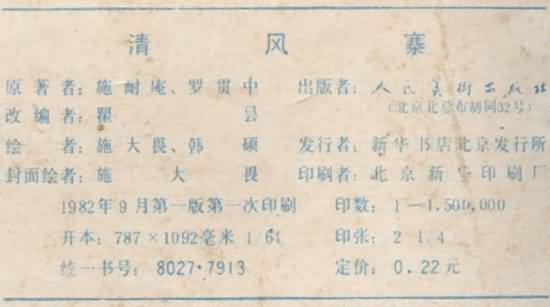 清风寨
原著者：施耐庵、罗贯中 出版者：人民美术出版社
（北京北总布胡同32号）
改编者：瞿昙
绘者：施大畏、韩硕 发行者：新华书店北京发行所
封面绘者：施大畏 印刷者：北京新华印刷厂
1982年9月第一版第一次印刷 印数：1—1,500,000
开本：787×1092毫米 1/64 印张：2 1/4
统一书号：8027·7913 定价：0.22元